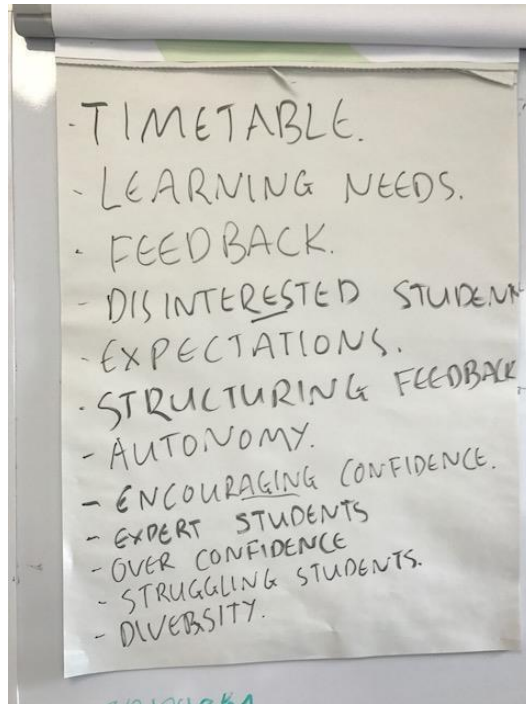 - TIMETABLE.
- LEARNING NEEDS.
- FEEDBACK.
- DISINTERESTED STUDENT
- EXPECTATIONS.
- STRUCTURING FEEDBACK
- AUTONOMY.
- ENCOURAGING CONFIDENCE.
- EXPERT STUDENTS
- OVER CONFIDENCE
- STRUGGLING STUDENTS.
- DIVERSITY.